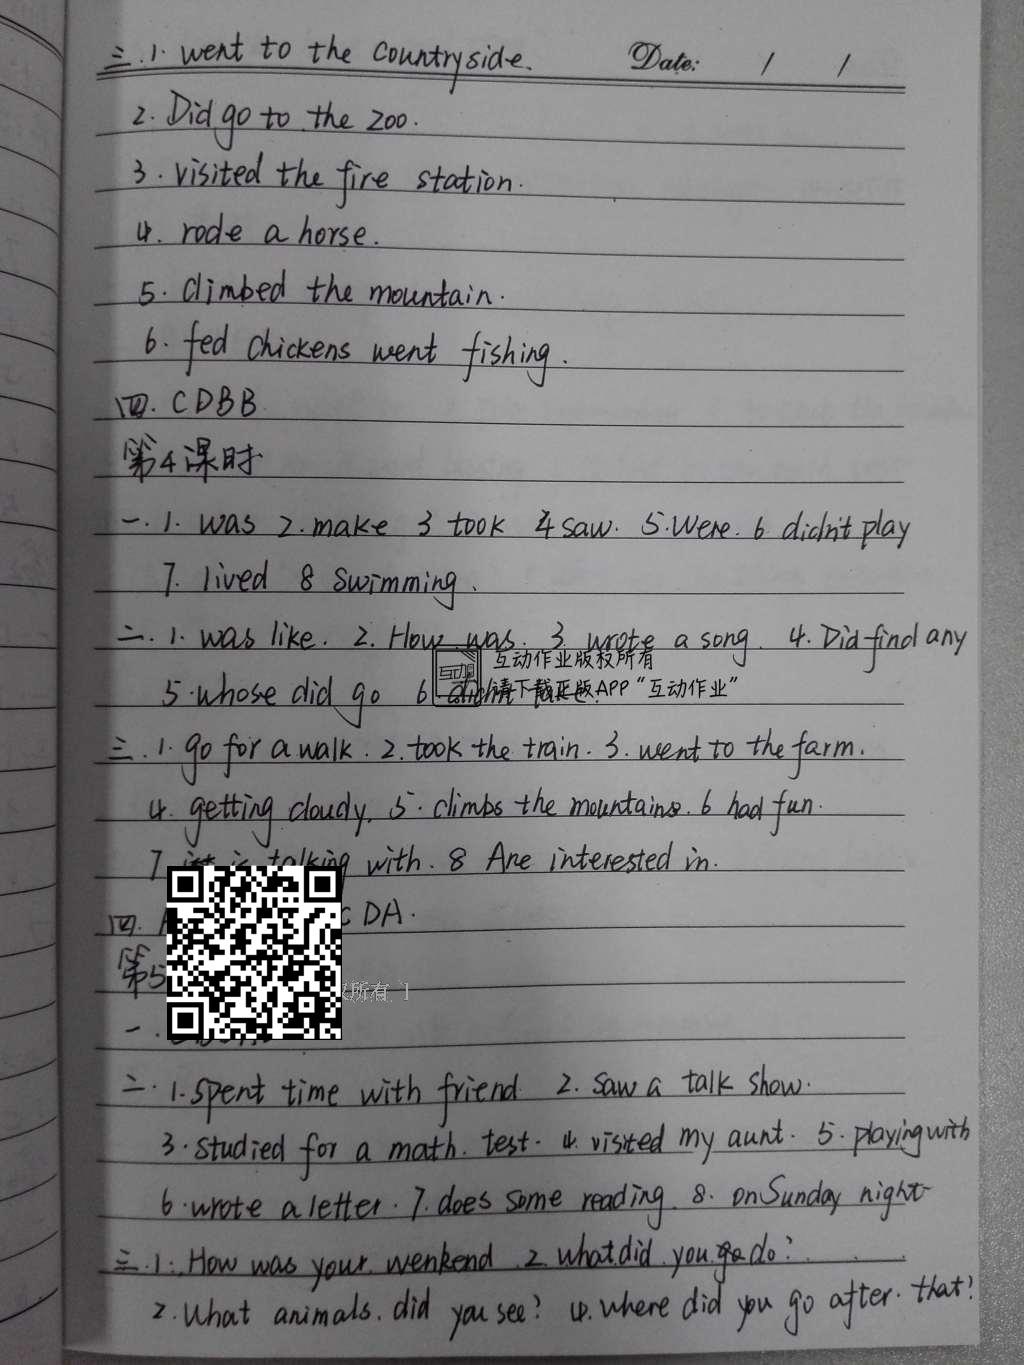 三.1. went to the countryside. Date: / /
2. Did go to the zoo.
3. visited the fire station.
4. rode a horse.
5. climbed the mountain.
6. fed chickens went fishing.
四. CDBB
第4课时
一.1. was 2. make 3 took 4 saw. 5. Were. 6 didn't play
7. lived 8 swimming.
二.1. was like. 2. How was. 3. wrote a song. 4. Did find any
互动作业版权所有
5. whose did go 6
请下载正版APP“互动作业”
三.1. go for a walk. 2. took the train. 3. went to the farm.
4. getting cloudy. 5. climbs the mountains. 6 had fun.
7 is talking with. 8 Are interested in.
四. CDA.
第5
权所有 ]
一.
二.1. spent time with friend 2. saw a talk show.
3. studied for a math. test. 4. visited my aunt. 5. playing with
6. wrote a letter. 7. does some reading. 8. on Sunday night
三.1. How was your wenkend 2. what did you do?
2. What animals. did you see? 4. where did you go after. that?